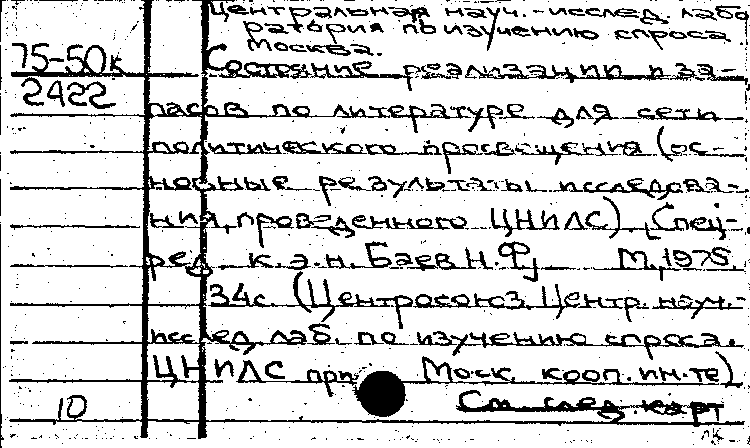 Центральная науч.-исслед. лабо
ратория по изучению спроса
Москва.
75-50к Состояние реализации и за-
2422 пасов по литературе для сети
политического просвещения (ос-
новные результаты исследова-
ния, проведенного ЦНИЛС). [Спец-
ред. к.э.н. Баев Н.Ф.] М., 1975.
34с. (Центросоюз. Центр. науч.-
исслед. лаб. по изучению спроса.
ЦНИЛС при Моск. кооп. ин-те)
10 См след. карт